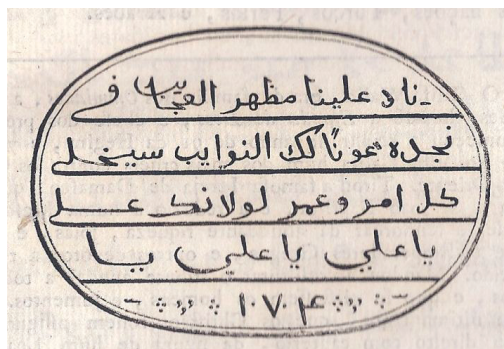 ناد علينا مظهر العجايب في
نجده عونًا لك النوايب سيحلي
كل امر وعمر لولانك علي
يا علي يا علي يا
١٧۴